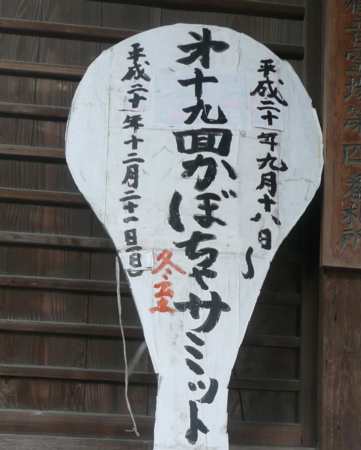 平成二十年九月十八日～
第十九回かぼちゃサミット
平成二十年十二月二十一日(日)
冬至